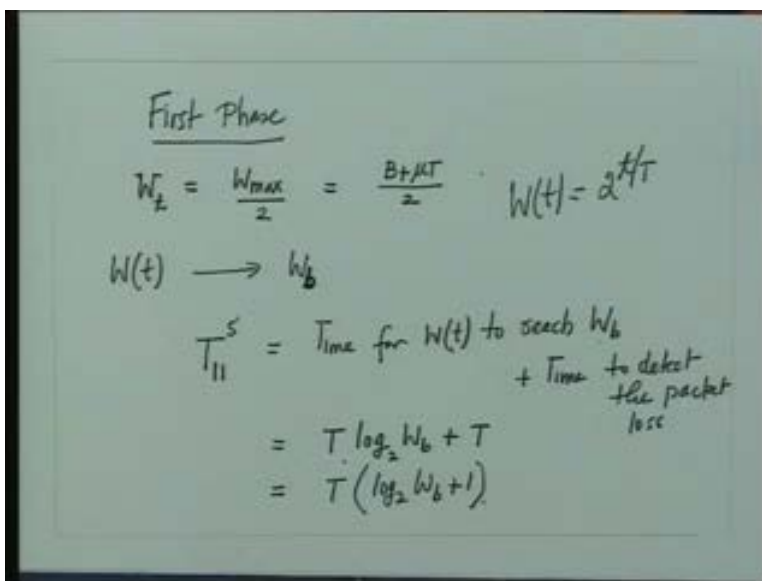 First Phase
W_t = W_max/2 = B+μT/2 . W(t) = 2^t/T
W(t) ⟶ W_b
T_11^s = Time for W(t) to seach W_b
+ Time to detect
the packet
loss
= T log_2 W_b + T
= T (log_2 W_b + 1).